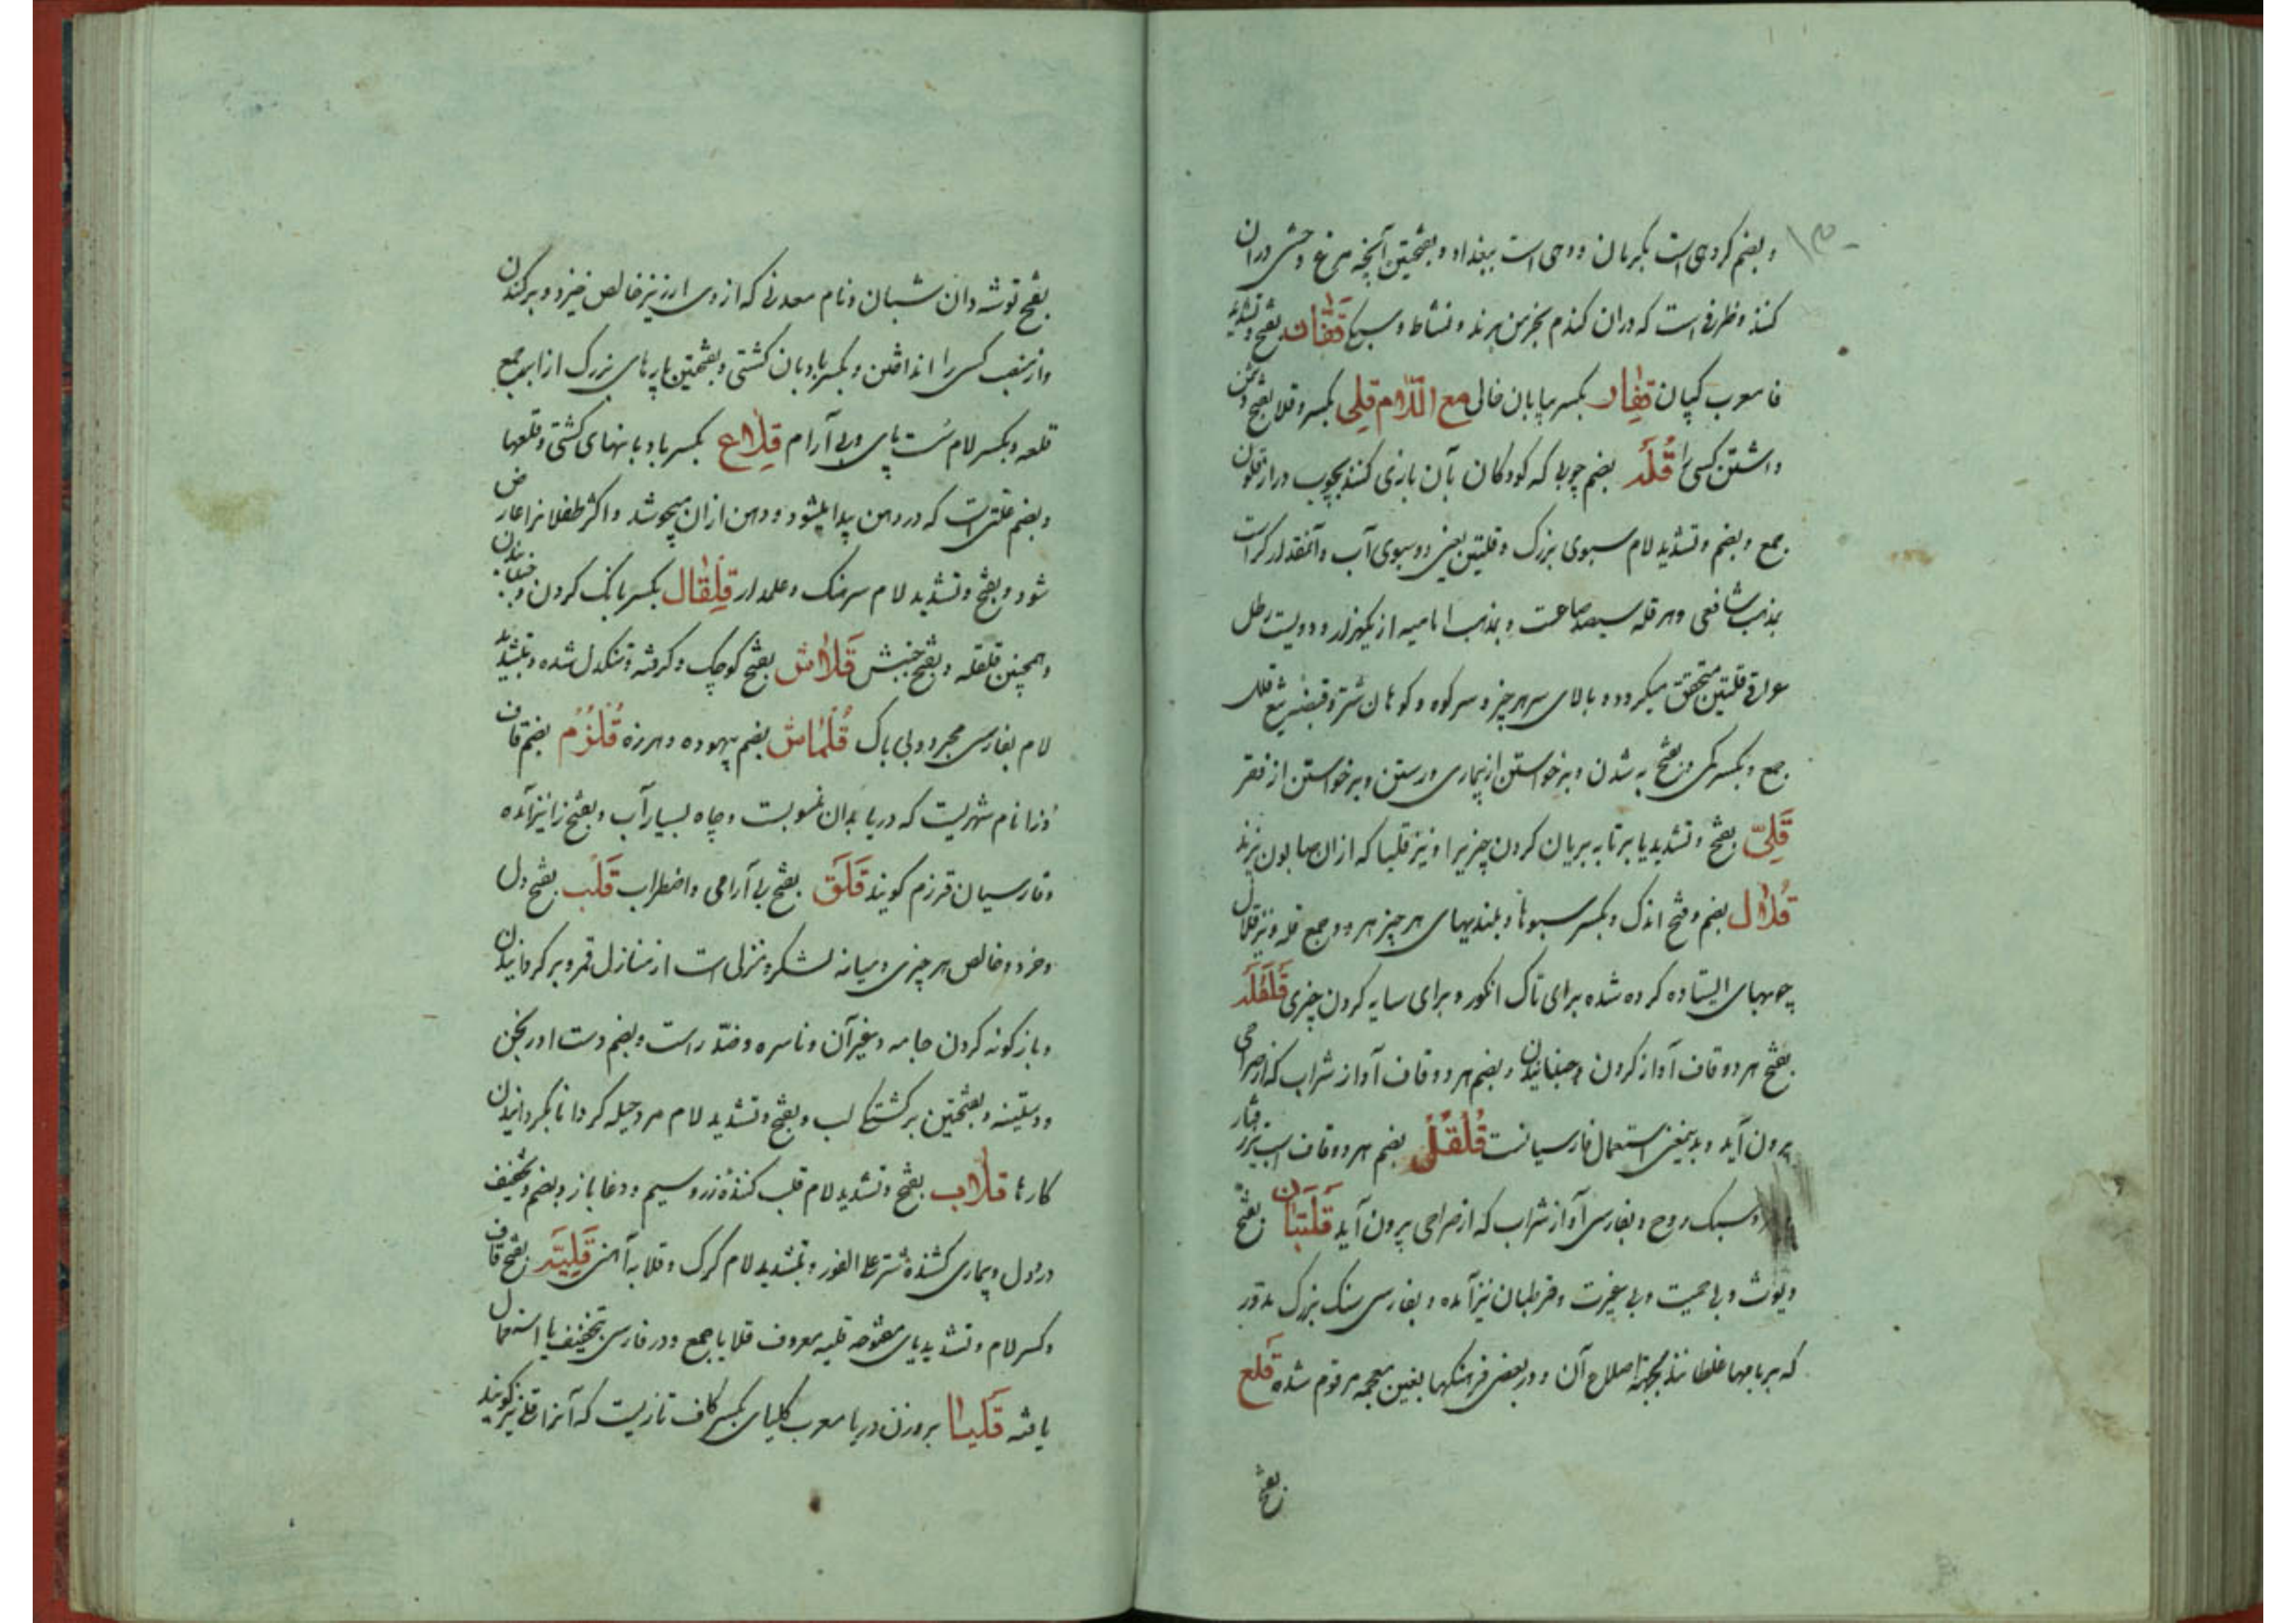 و بضم کروهی است بکرمان و دهی است ببغداد و بفتحتین آنچه مرغ وحشی در ان
کنند و ظرفی است که دران کندم بخرمن برند و نشاط و سبکی قَفّان بفتح و تشدید
فا معرب کپان قفار بکسر بیابان خالی مع اللام قلی بکسر و قلا بفتح دشمن
داشتن کسی را قُلَه بضم چوبی که کودکان بآن بازی کنند بچوب دراز قلون
جمع و بضم و تشدید لام سبوی بزرک و قلتین یعنی دو سبوی آب و آنمقدار کر است
بمذهب شافعی و هر قله سیصد صاعست و بمذهب امامیه از یکهزار و دویست رطل
عراقی قلتین متحقق میکردد و بالای سر هر چیز و سر کوه و کوهان شتر و قبضه تیغ قلل
جمع و بکسر کمی و بفتح به شدن و برخواستن از بیماری و رستن و برخواستن از فقر
قَلِیّ بفتح و تشدید یا برتابه بریان کردن چیزیرا و نیز قلیا که ازان صابون پزند
قلال بضم و فتح اندک و بکسر سبوها و بلندیهای هر چیز هر دو جمع قله و نیز قلال
چوبهای ایستاده کرده شده برای تاک انکور و برای سایه کردن چیزی قَلقَلَه
بفتح هر دو قاف آواز کردن و جنبانیدن و بضم هر دو قاف آواز شراب که از صراحی
برون آید و بدینمعنی استعمال فارسیانست قُلقُل بضم هر دو قاف اسب تیز رفتار
و سبک روح و بفارسی آواز شراب که از صراحی برون آید قَلتَبان بفتح
دیوث و بی حمیت و بی غیرت و قرطبان نیز آمده و بفارسی سنک بزرک مدور
که بر بامها غلطانند بجهة اصلاح آن و در بعضی فرهنکها بغین معجمه مرقوم شده قلع
بفتح
بفتح توشه دان شبان و نام معدنی که از وی ارزیز خالص خیزد و برکندن
و از منصب کسی را انداختن و بکسر بادبان کشتی و بفتحتین پارهای بزرک از ابر جمع
قلعه و بکسر لام سست پای و بی آرام قِلاع بکسر بادبانهای کشتی و قلعها
و بضم علتی است که در دهن پیدا میشود و دهن ازان میجوشد و اکثر طفلانرا عارض
شود و بفتح و تشدید لام سرهنک و علمدار قِلقال بکسر بانک کردن و جنبانیدن
و همچنین قلقله و بفتح جنبش قَلاش بفتح کوچک و کرفته و تنکدل شده و بتشدید
لام بفارسی مجرد و بی باک قُلماش بضم بیهوده و هرزه قُلزُم بضم قاف
و زا نام شهریست که دریا بدان منسوبست و چاه بسیار آب و بفتح زا نیز آمده
و فارسیان قرزم کویند قَلَق بفتح بی آرامی و اضطراب قَلب بفتح دل
و خرد و خالص هر چیزی و میانه لشکر و منزلی است از منازل قمر و برکردانیدن
و بازکونه کردن جامه و غیر آن و ناسره و ضدّ راست و بضم دست اورنجن
و دستینه و بفتحتین برکشتکی لب و بفتح و تشدید لام مرد حیله کر دانا بکردانیدن
کارها قلاب بفتح و تشدید لام قلب کننده زر و سیم و دغا باز و بضم و تخفیف
درد دل و بیماری کشنده شتر علی الفور و بتشدید لام کرک و قلابه آهنی قَلِیَّه بفتح قاف
و کسر لام و تشدید یای مفتوحه قلیه معروف قلایا جمع و در فارسی بتخفیف یا استعمال
یافته قَلیا بروزن دریا معرب کلیای بکسر کاف تازیست که آنرا قلی نیز کویند